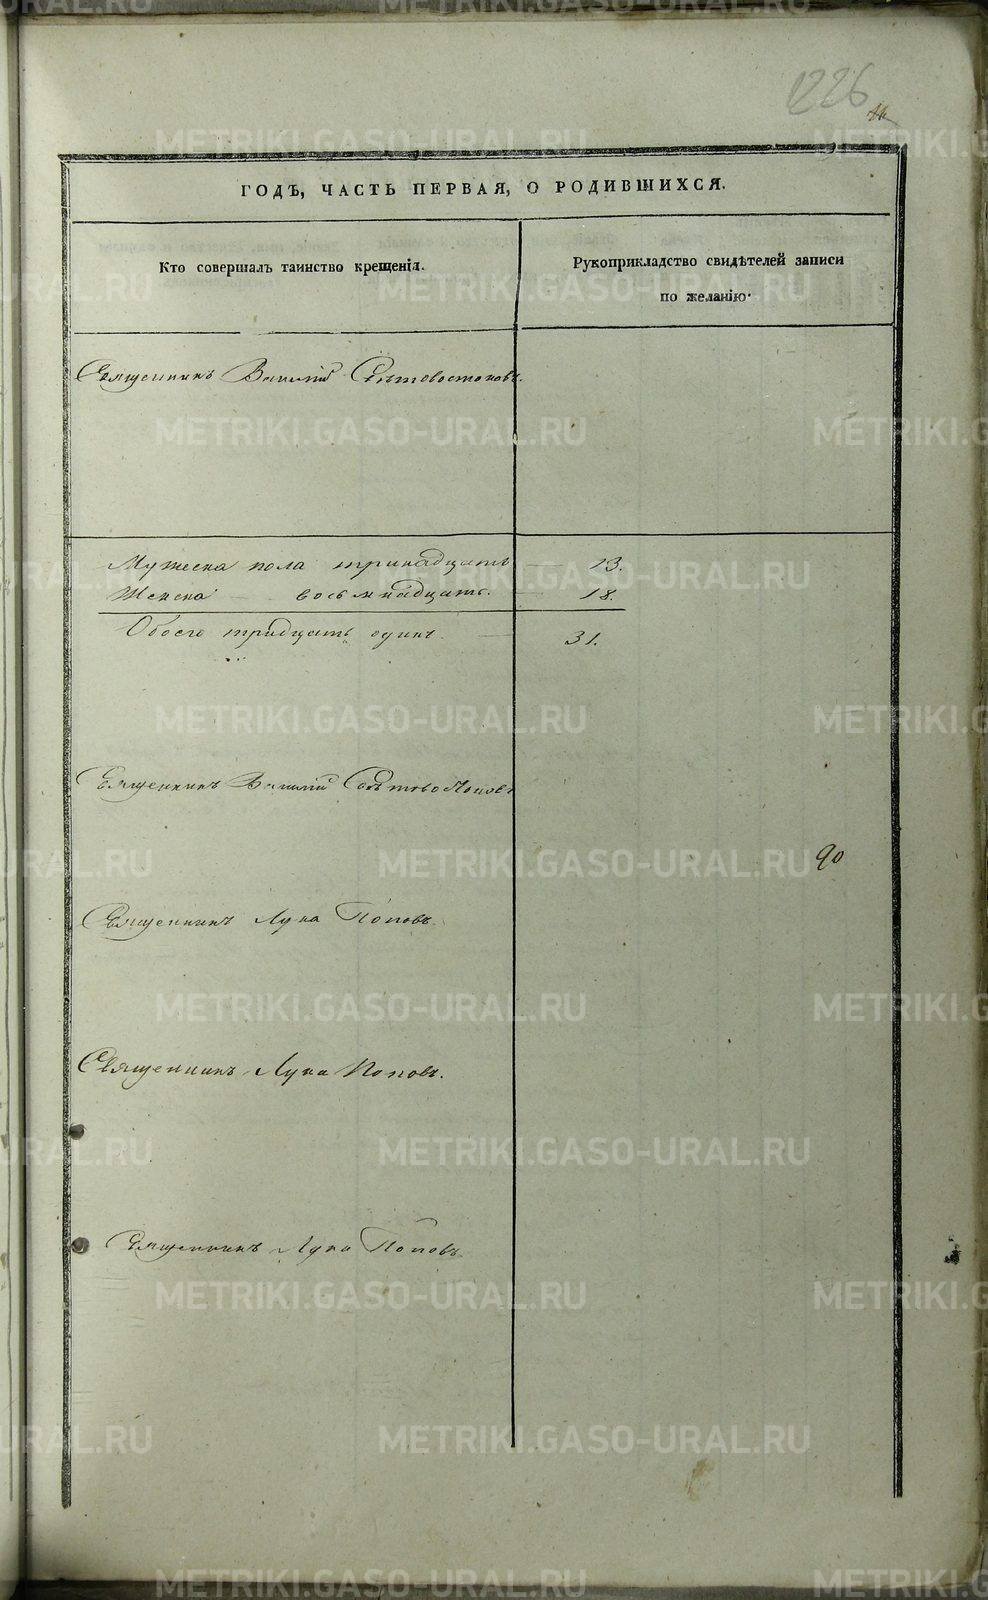 1226
ГОДЪ, ЧАСТЬ ПЕРВАЯ, О РОДИВШИХСЯ.
Кто совершалъ таинство крещенія.
Рукоприкладство свидѣтелей записи
по желанію.
Священникъ Василій Свѣтовостоковъ.
Мужеска пола тринадцать — 13.
Женска — восьмнадцать. — 18.
Обоего тридцать одинъ. — 31.
Священникъ Василій
90
Священникъ Лука Поповъ.
Священникъ Лука Поповъ.
Священникъ Лука Поповъ.
METRIKI.GASO-URAL.RU